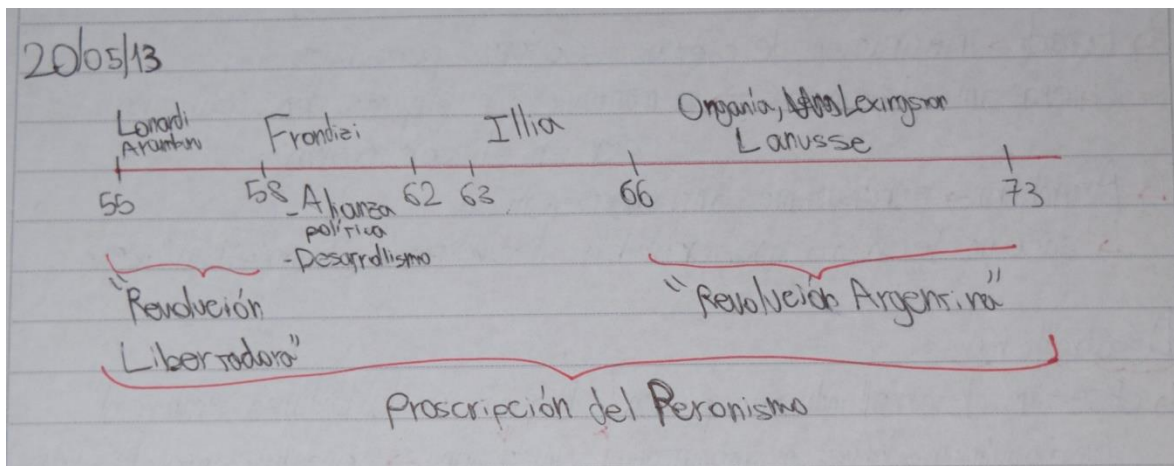 20/05/13
Lonardi
Aramburu
Frondizi
Illia
Onganía, Lexingston
Lanusse
55
58
62
63
66
73
-Alianza
política
-Desarrollismo
"Revolución
Libertadora"
"Revolución Argentina"
Proscripción del Peronismo